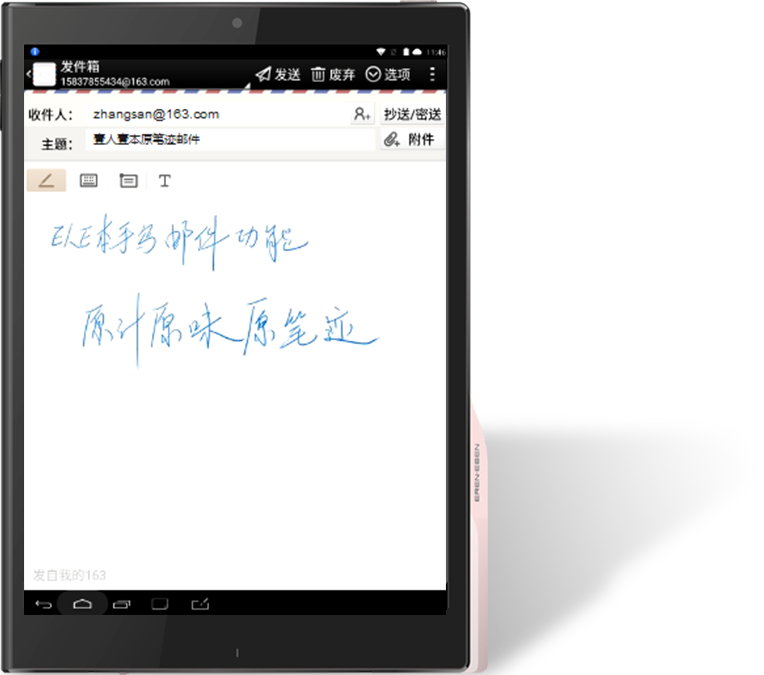 11:46
发件箱
15837855434@163.com
发送 废弃 选项
收件人: zhangsan@163.com 抄送/密送
主题: 壹人壹本原笔迹邮件 附件
T
E人E本手写邮件功能
原汁原味原笔迹
发自我的163
EREN·EBEN